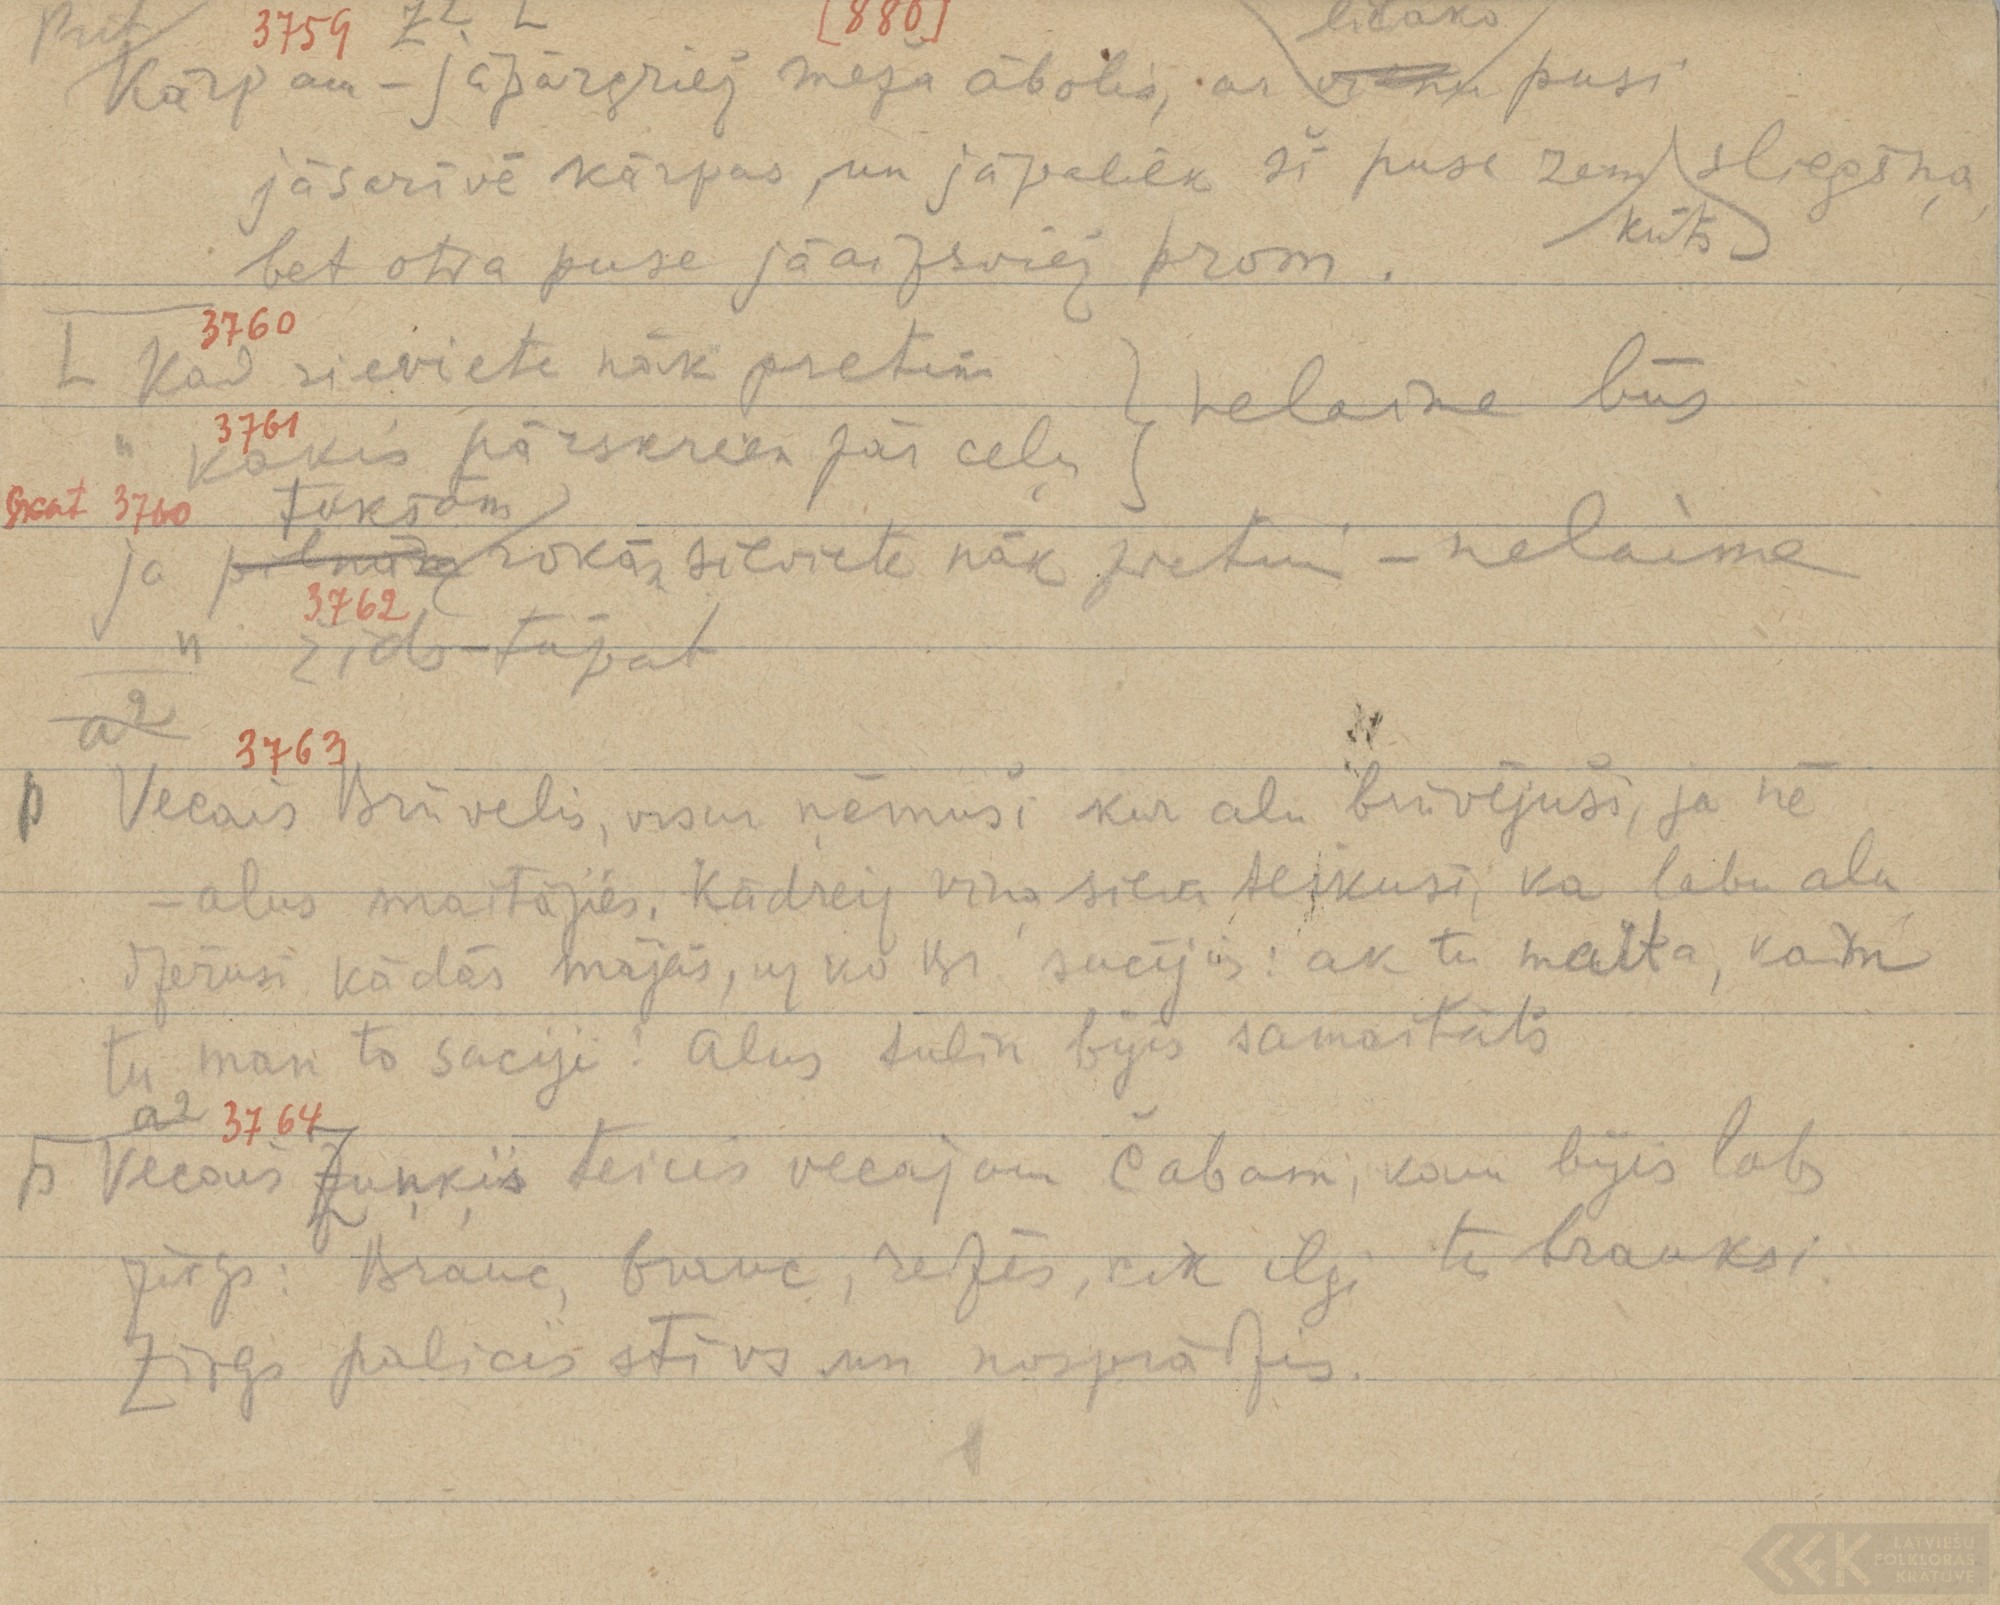 3759 [880]
lielāko
Kārpām – jāpārgriež meža ābolis, ar vienu pusi
jāsarīvē kārpas, un jāpaliek šī puse zem sliegšņa,
kūts
bet otra puse jāaizsviež prom.
3760
L Kad sieviete nāk pretim } nelaime būs
3761
" kaķis pārskrien pār ceļu
Skat 3760 tukšām
ja pilnām rokām sieviete nāk pretim – nelaime
3762
" žīds – tāpat
a2
3763
p Vecais Brūvelis, visur ņēmuši kur alu brūvējuši, ja nē
– alus maitājies. Kādreiz viņa sieva teikusi, ka labu alu
dzērusi kādās mājās, uz ko Br. sacījis: ak tu maita, kādēļ
tu man to saciji! Alus tūlīn bijis samaitāts
a2 3764
p Vecais Zuņķis teicis vecajam Čabam, kam bijis labs
zirgs: Brauc, brauc, redzēs, cik ilgi tu brauksi.
Zirgs palicis stīvs un nosprādzis.
LATVIEŠU
FOLKLORAS
KRĀTUVE